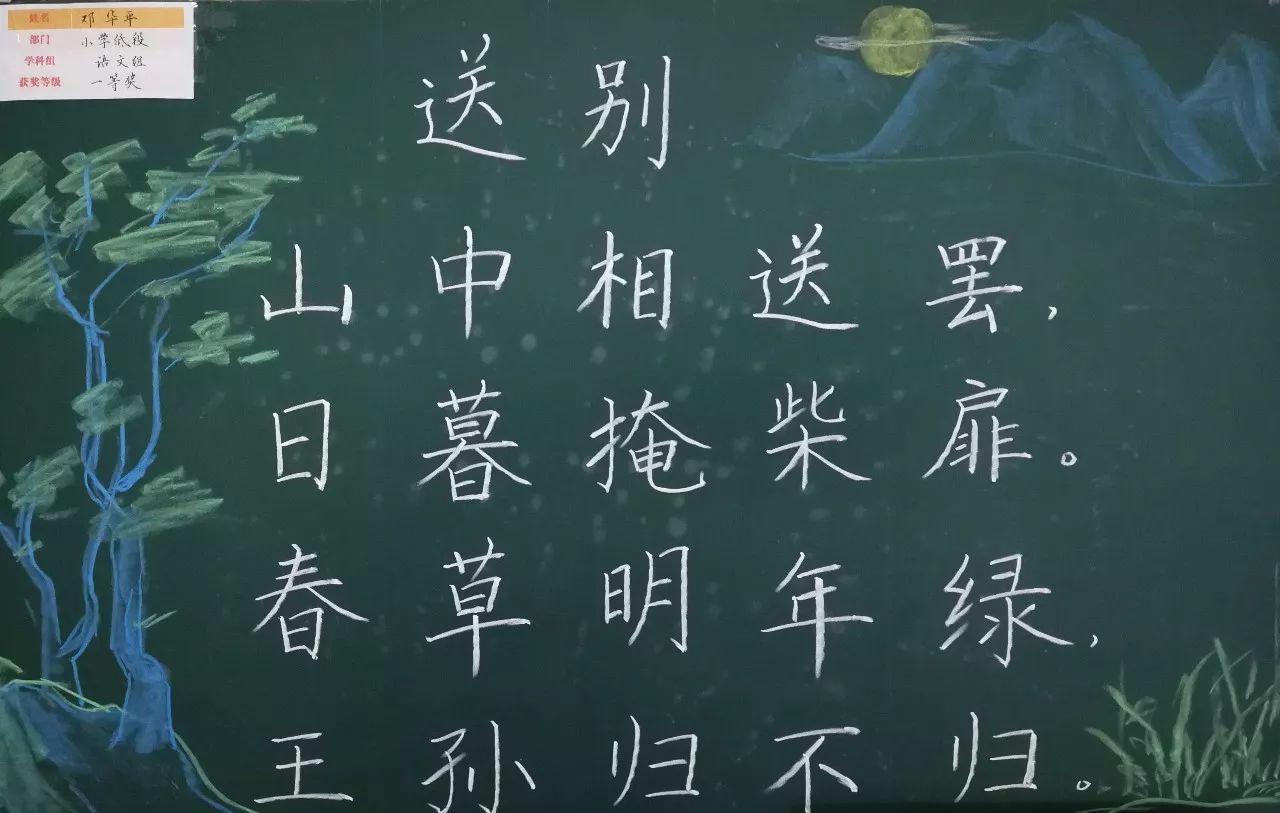 姓名 邓华平
部门 小学低段
学科组 语文组
获奖等级 一等奖
送别
山中相送罢，
日暮掩柴扉。
春草明年绿，
王孙归不归。